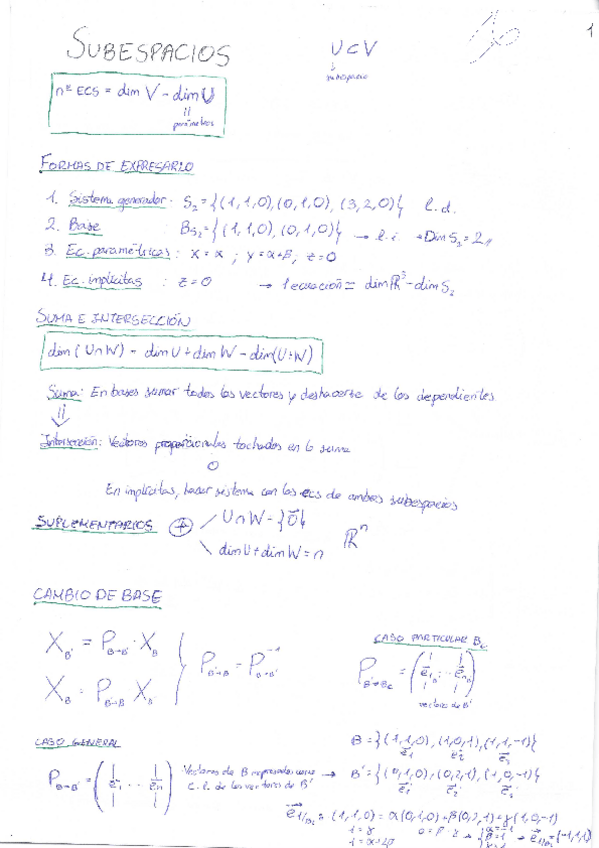 1
SUBESPACIOS
U⊂V
↓
subespacio
nº ECS = dim V - dim U
||
parámetros
FORMAS DE EXPRESARLO
1. Sistema generador: S₂ = {(1,1,0), (0,1,0), (3,2,0)} l.d.
2. Base : B_S₂ = {(1,1,0), (0,1,0)} → l.i. → Dim S₂ = 2
3. Ec. paramétricas: x = α ; y = α+β ; z = 0
4. Ec. implícitas : z = 0 → 1 ecuación = dim ℝ³ - dim S₂
SUMA E INTERSECCIÓN
dim (U∩W) = dim U + dim W - dim(U+W)
Suma: En bases sumar todos los vectores y deshacerse de los dependientes
Intersección: Vectores proporcionales tachados en la suma
O
En implícitas, hacer sistema con las ecs de ambos subespacios
SUPLEMENTARIOS ⊕ U∩W = {0⃗}
dim U + dim W = n
ℝⁿ
CAMBIO DE BASE
X_B' = P_B→B' · X_B
X_B = P_B'→B X_B'
P_B'→B = P_B→B'⁻¹
CASO PARTICULAR B_c
P_B'→Bc = (e⃗₁ ... e⃗ₙ)
vectores de B'
CASO GENERAL
P_B→B' = (e⃗₁ ... e⃗ₙ) Vectores de B expresados como
C.L. de los vectores de B'
B = {(1,1,0), (1,0,1), (1,1,-1)}
e⃗₁ e⃗₂ e⃗₃
→ B' = {(0,1,0), (0,2,1), (1,0,-1)}
e⃗₁' e⃗₂' e⃗₃'
(1,1,0) = α(0,1,0) + β(0,2,1) + γ(1,0,-1)
1 = γ
1 = α+2β
0 = β - γ
α = -1
β = 1
γ = 1
(-1,1,1)